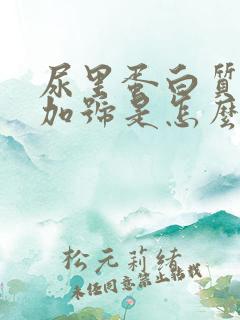 尿里蛋白質
加號是怎麼
松元莉緒
未经同意禁止转载